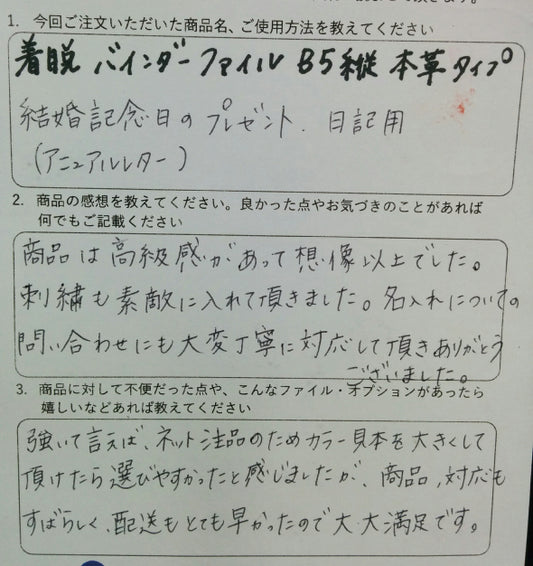 1. 今回ご注文いただいた商品名、ご使用方法を教えてください
着脱 バインダーファイル B5縦 本革タイプ
結婚記念日のプレゼント、日記用
(アニュアルレター)
2. 商品の感想を教えてください。良かった点やお気づきのことがあれば
何でもご記載ください
商品は高級感があって想像以上でした。
刺繍も素敵に入れて頂きました。名入れについての
問い合わせにも大変丁寧に対応して頂きありがとう
ございました。
3. 商品に対して不便だった点や、こんなファイル・オプションがあったら
嬉しいなどあれば教えてください
強いて言えば、ネット注品のためカラー見本を大きくして
頂けたら選びやすかったと感じましたが、商品、対応も
すばらしく、配送もとても早かったので大・大満足です。